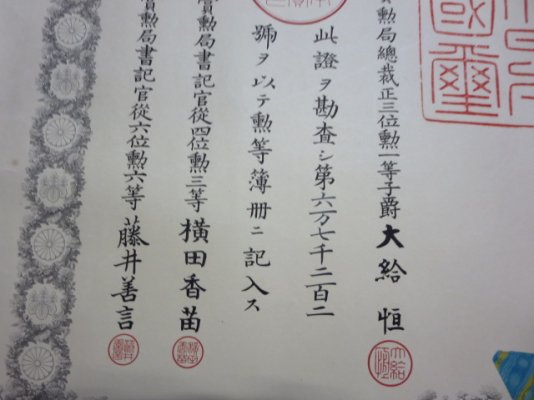 勲局總裁正三位勲一等子爵大給恒
此證ヲ勘査シ第六万七千二百二
號ヲ以テ勲等簿册ニ記入ス
賞勲局書記官從四位勲三等横田香苗
賞勲局書記官從六位勲六等藤井善言